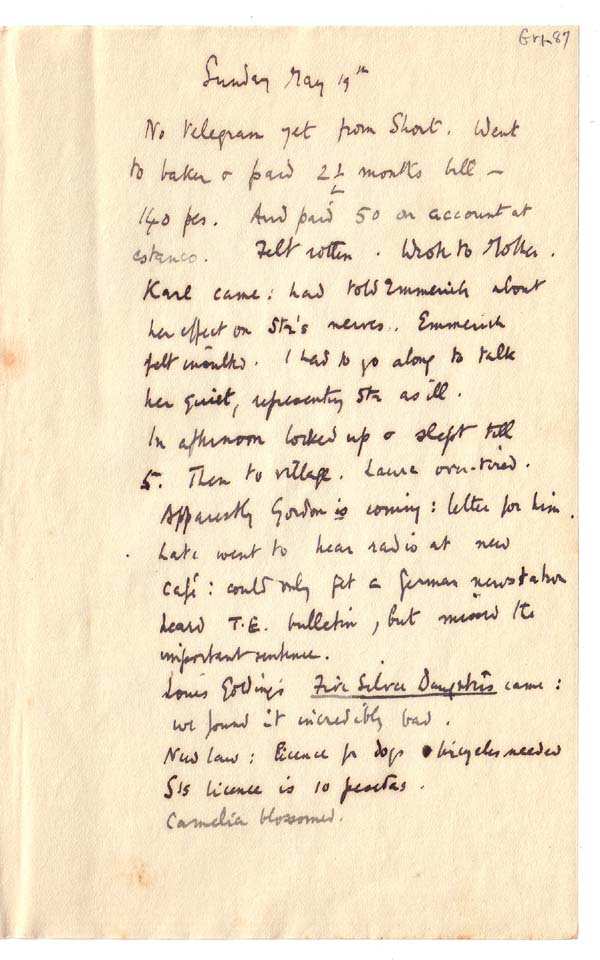 Sunday May 19th
No telegram yet from Short. Went
to baker & paid 2½ months bill –
140 pes. And paid 50 on account at
estanco. Felt rotten. Wrote to Mother.
Karl came: had told Emmerich about
her effect on 's nerves. Emmerich
felt insulted. I had to go along to talk
her quiet, representing as ill.
In afternoon locked up & slept till
5. Then to village. Laura over-tired.
Apparently Gordon is coming: letter for him.
Late went to hear radio at new
café: could only get a German news station
heard T.E. bulletin, but missed the
important sentence.
Louis Golding's Five Silver Daughters came:
we found it incredibly bad.
New law: licence for dogs bicycles needed
licence is 10 pesetas.
Camelia blossomed.